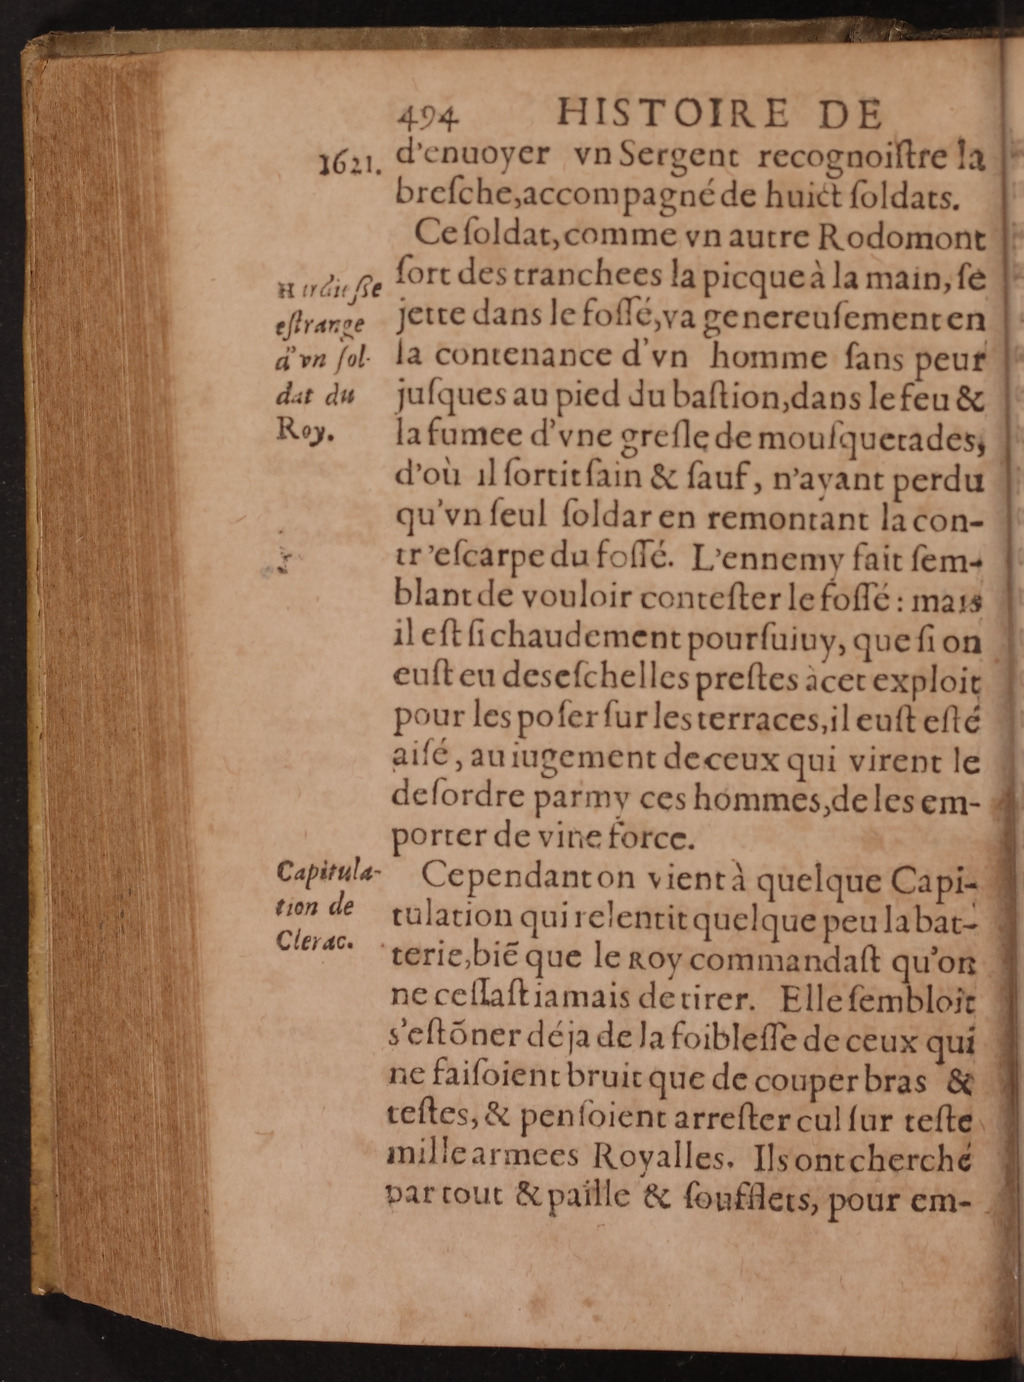 494 HISTOIRE DE
1621.
d'enuoyer vn Sergent recognoiſtre la
breſche, accompagné de huict ſoldats.
Ce ſoldat, comme vn autre Rodomont
ſort des tranchees la picque à la main, ſe
jette dans le foſſé, va genereuſement en
la contenance d'vn homme ſans peur
juſques au pied du baſtion, dans le feu &
la fumee d'vne greſle de mouſquetades,
d'où il ſortit ſain & ſauf, n'ayant perdu
qu'vn ſeul ſoldar en remontant la con-
tr'eſcarpe du foſſé. L'ennemy fait ſem-
blant de vouloir conteſter le foſſé : mais
il eſt ſi chaudement pourſuiuy, que ſi on
euſt eu des eſchelles preſtes à cet exploit
pour les poſer ſur les terraces, il euſt eſté
aiſé, au iugement de ceux qui virent le
deſordre parmy ces hommes, de les em-
porter de viue force.
Cependant on vient à quelque Capi-
tulation qui relentit quelque peu la bat-
terie, biẽ que le Roy commandaſt qu'on
ne ceſſaſt iamais de tirer. Elle ſembloit
s'eſtõner déja de la foibleſſe de ceux qui
ne faiſoient bruit que de couper bras &
teſtes, & penſoient arreſter cul ſur teſte
mille armees Royalles. Ils ont cherché
par tout & paille & ſoufflets, pour em-
Hardieſſe
eſtrange
d'vn ſol-
dat du
Roy.
Capitula-
tion de
Clerac.